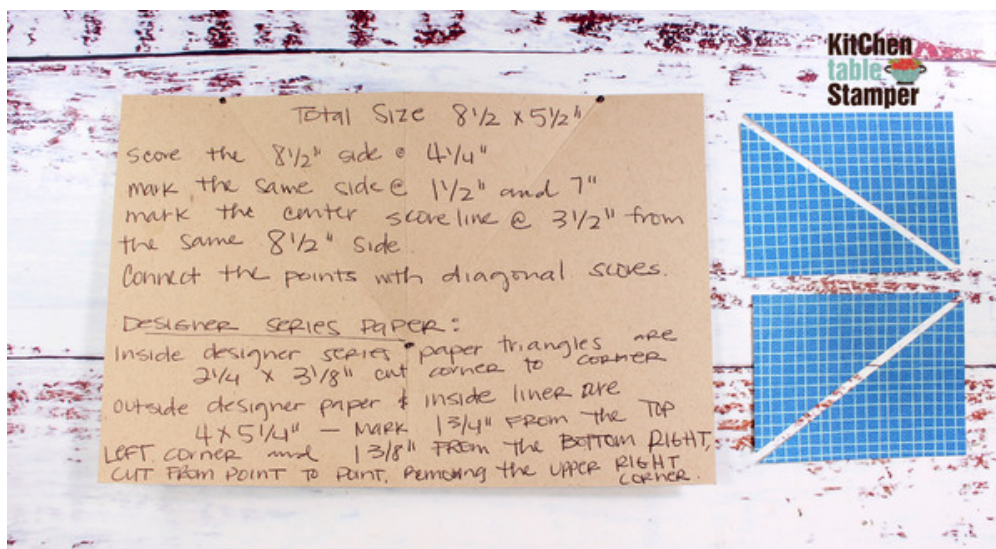 KitChen
table
Stamper
Total Size 8 1/2 x 5 1/2"
score the 8 1/2" side @ 4 1/4"
mark the same side @ 1 1/2" and 7"
mark the center score line @ 3 1/2" from
the same 8 1/2" side
Connect the points with diagonal scores.
DESIGNER SERIES PAPER:
Inside designer series paper triangles are
2 1/4 x 3 1/8" cut corner to corner
outside designer paper & inside liner are
4 x 5 1/4" – MARK 1 3/4" FROM the TOP
LEFT corner and 1 3/8" FROM the BOTTOM RIGHT,
CUT FROM POINT TO POINT, removing the UPPER RIGHT
CORNER.